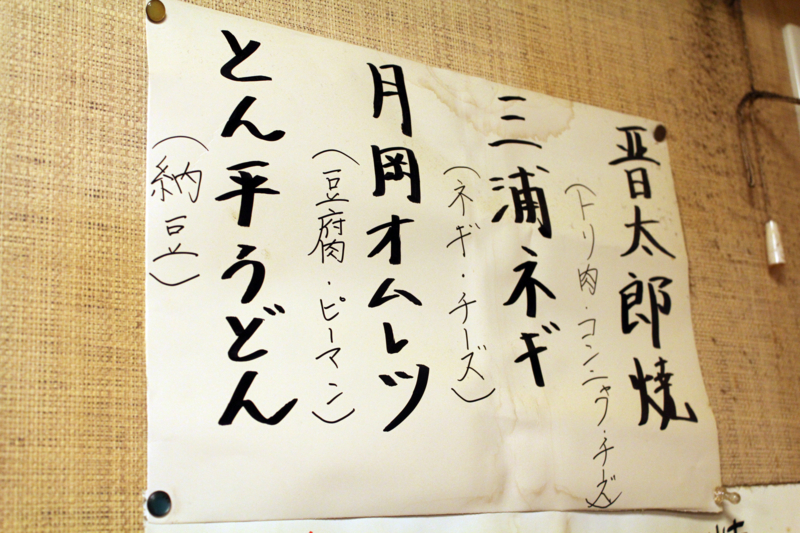 晋太郎焼
(トリ肉・コンニャク・チーズ)
三浦ネギ
(ネギ・チーズ)
月岡オムレツ
(豆腐・ピーマン)
とん平うどん
(納豆)